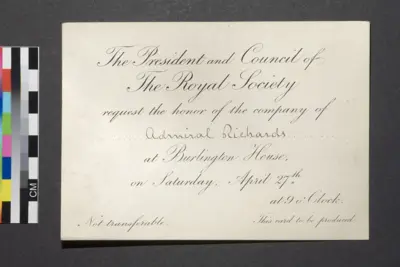 The President and Council of
The Royal Society
request the honor of the company of
Admiral Richards
at Burlington House,
on Saturday, April 27th
at 9 o'Clock.
Not transferable.
This card to be produced
CM